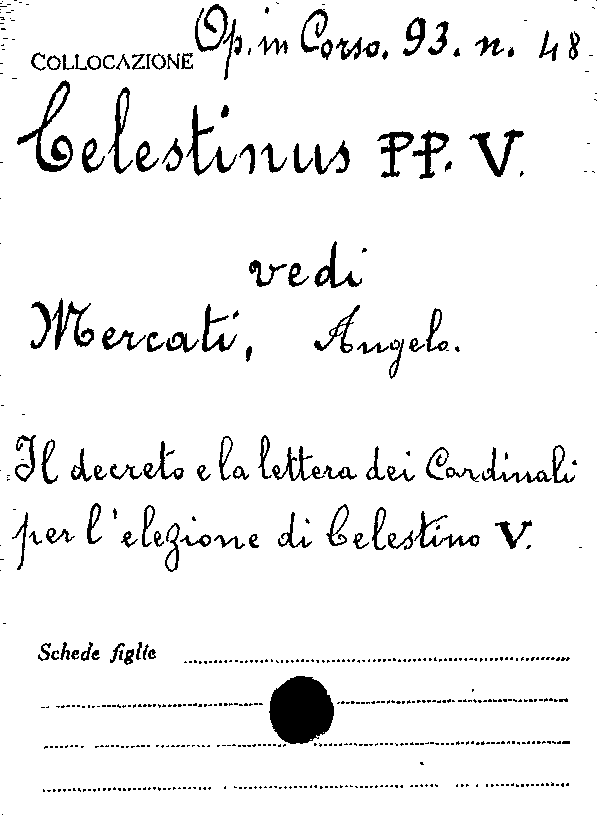 COLLOCAZIONE Op. in Corso. 93. n. 48
Celestinus PP. V.
vedi
Mercati, Angelo.
Il decreto e la lettera dei Cardinali
per l'elezione di Celestino V.
Schede figlie